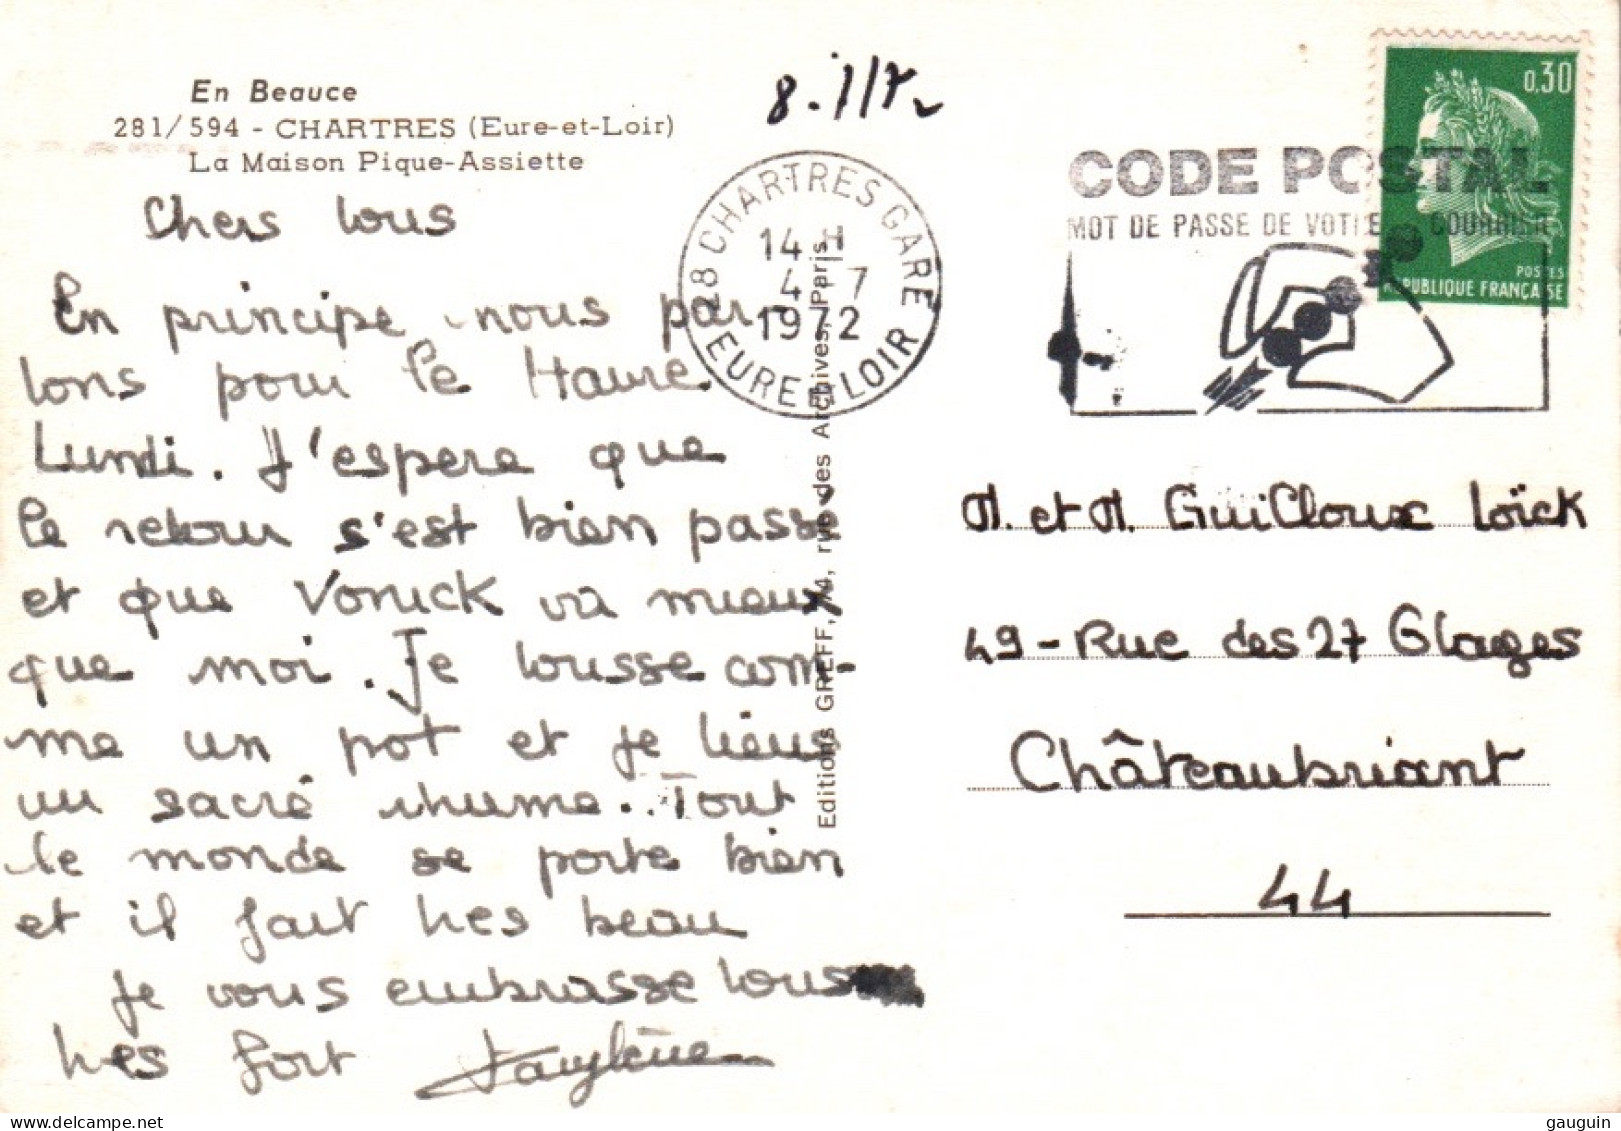 En Beauce
281/594 - CHARTRES (Eure-et-Loir)
La Maison Pique-Assiette
Chers tous
En principe nous par-
tons pour le Havre
Lundi. J'espere que
le retour s'est bien passé
et que Vonick va mieux
que moi. Je tousse com-
me un pot et je tiens
un sacré rhume. Tout
le monde se porte bien
et il fait tres beau
je vous embrasse tous
tres fort
28 CHARTRES GARE
14 H
4 - 7
1972
EURE ET LOIR
Editions GREFF, 74, rue des Archives, Paris
0,30
POSTES
REPUBLIQUE FRANÇAISE
CODE POSTAL
MOT DE PASSE DE VOTRE COURRIER
M. et M. Guilloux Loïck
49 - Rue des 27 Otages
Châteaubriant
44
gauguin